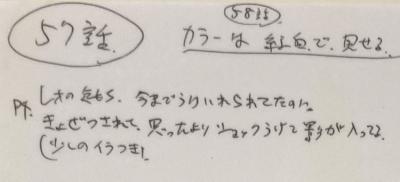 57話
58話
カラーは 紅白で、見せる。
しオの気もち、今までうけいれられてたのに。
きょぜつされて、思ったよりショックうけて 影が入ってる。
(少しのイラつき)